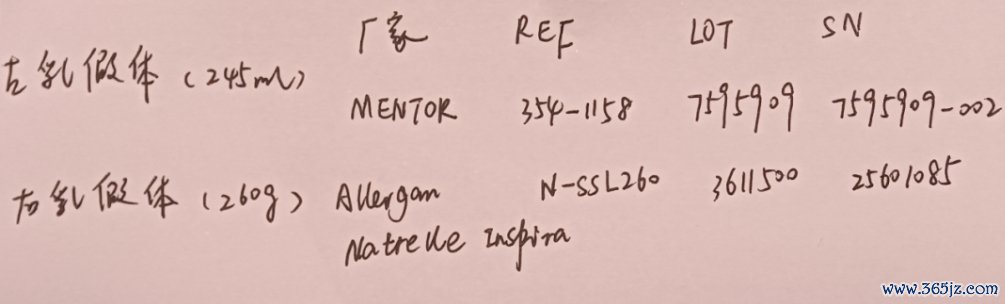 厂家 REF LOT SN
左乳假体（245ml）
MENTOR 354-1158 7595909 7595909-002
右乳假体（260g） Allergan N-SSL260 3611500 25601085
Natrelle Inspira
www.365jz.com